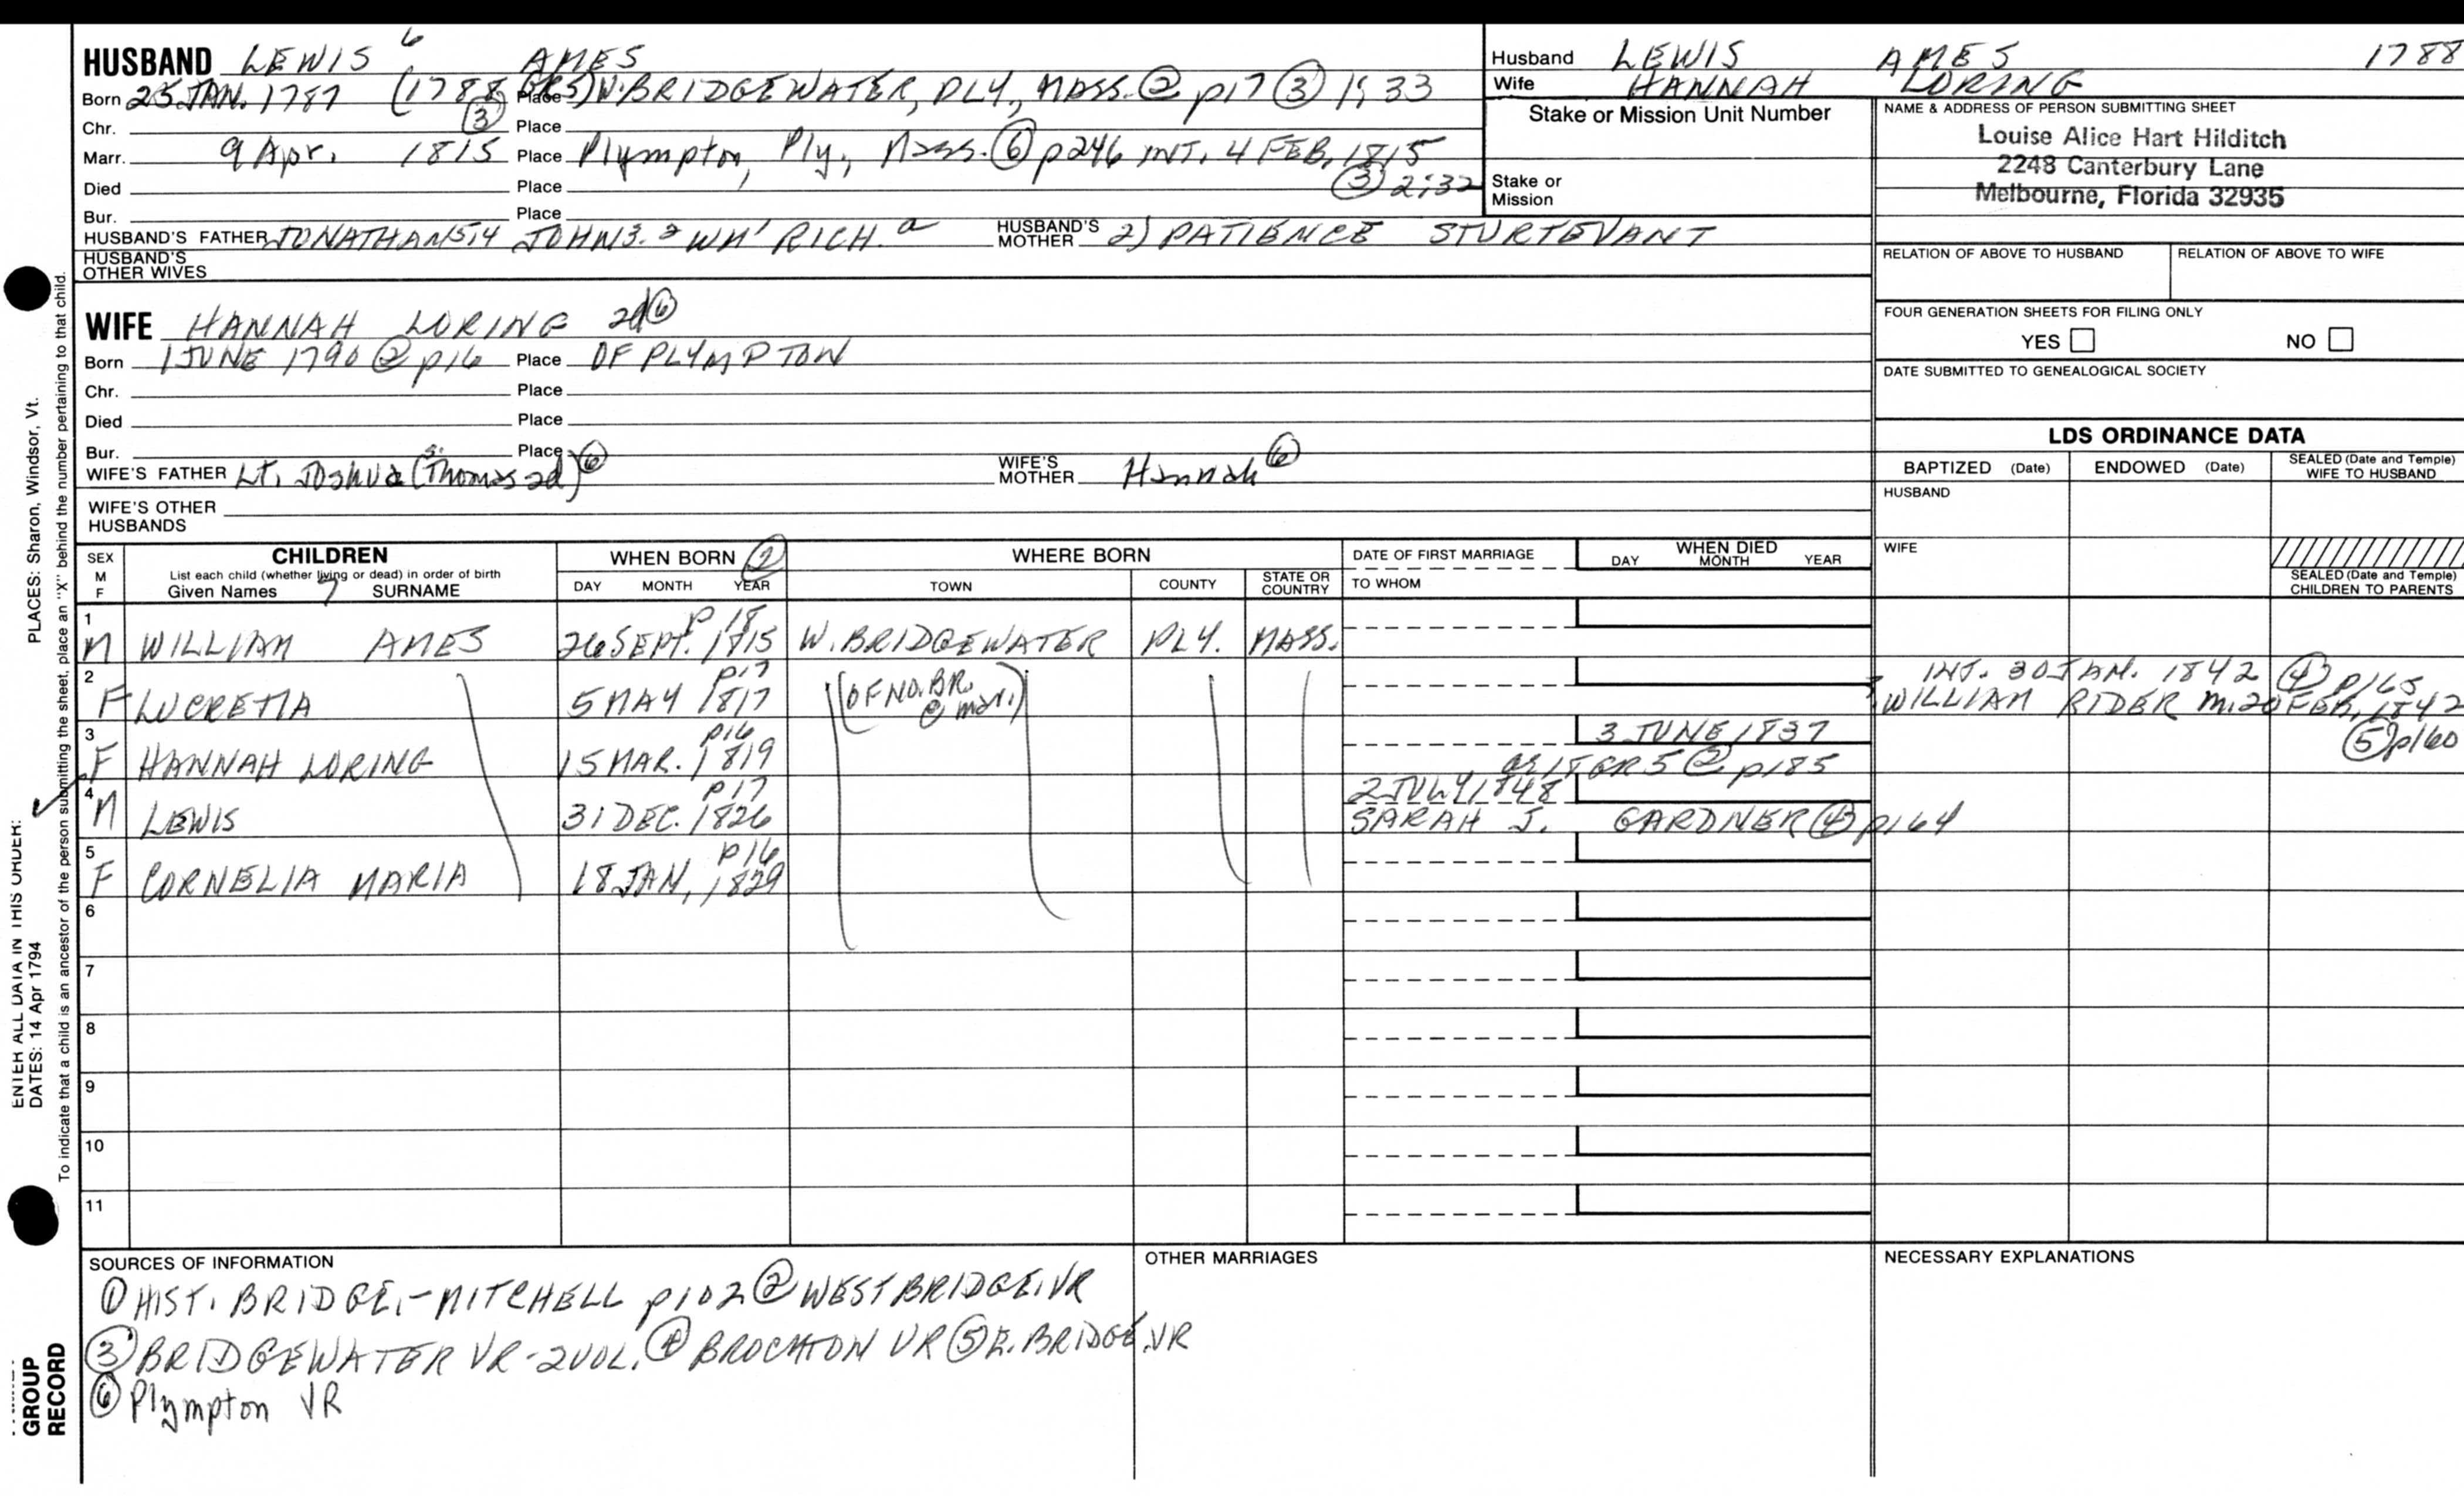 HUSBAND LEWIS 6 AMES
Born 25 JAN. 1787 (1788 GR5) Place W. BRIDGEWATER, PLY., MASS. ② p17 ③ 1;33
Chr. ③ Place
Marr. 9 Apr. 1815 Place Plympton, Ply., Mass. ⑥ p246 INT. 4 FEB, 1815
Died Place ③ 2;32
Bur. Place
HUSBAND'S FATHER JONATHAN 5,4 JOHN 3, 2 WM' RICH. a HUSBAND'S MOTHER 2) PATIENCE STURTEVANT
HUSBAND'S OTHER WIVES
Husband LEWIS AMES 1788
Wife HANNAH LORING
Stake or Mission Unit Number
Stake or Mission
NAME & ADDRESS OF PERSON SUBMITTING SHEET
Louise Alice Hart Hilditch
2248 Canterbury Lane
Melbourne, Florida 32935
RELATION OF ABOVE TO HUSBAND RELATION OF ABOVE TO WIFE
FOUR GENERATION SHEETS FOR FILING ONLY
YES NO
DATE SUBMITTED TO GENEALOGICAL SOCIETY
WIFE HANNAH LORING 2d ⑥
Born 1 JUNE 1790 ② p16 Place OF PLYMPTON
Chr. Place
Died Place
Bur. Place
WIFE'S FATHER Lt. Joshua (Thomas 2d) ⑥ WIFE'S MOTHER Hannah ⑥
WIFE'S OTHER HUSBANDS
LDS ORDINANCE DATA
BAPTIZED (Date) ENDOWED (Date) SEALED (Date and Temple) WIFE TO HUSBAND
HUSBAND
WIFE
SEALED (Date and Temple) CHILDREN TO PARENTS
SEX M F
CHILDREN
List each child (whether living or dead) in order of birth
Given Names 7 SURNAME
WHEN BORN ②
DAY MONTH YEAR
WHERE BORN
TOWN COUNTY STATE OR COUNTRY
DATE OF FIRST MARRIAGE
TO WHOM
WHEN DIED
DAY MONTH YEAR
1 p 18
M WILLIAM AMES 26 SEPT. 1815 W. BRIDGEWATER PLY. MASS.
2 p17 INT. 30 JAN. 1842 ④ p165
F LUCRETIA 5 MAY 1817 (OF NO. BR. @ mar.) WILLIAM RIDER m. 20 FEB, 1842
⑤ p160
3 p16 3 JUNE 1837
F HANNAH LORING 15 MAR. 1819 GR5 ② p185
4 p17 2 JULY 1848
M LEWIS 31 DEC. 1826 SARAH J. GARDNER ④ p164
5 p16
F CORNELIA MARIA 18 JAN, 1829
6
7
8
9
10
11
SOURCES OF INFORMATION
① HIST. BRIDGE.-MITCHELL p102 ② WEST BRIDGE. VR
③ BRIDGEWATER VR-2VOL. ④ BROCKTON VR ⑤ E. BRIDGE. VR
⑥ Plympton VR
OTHER MARRIAGES
NECESSARY EXPLANATIONS
ENTER ALL DATA IN THIS ORDER:
DATES: 14 Apr 1794 PLACES: Sharon, Windsor, Vt.
To indicate that a child is an ancestor of the person submitting the sheet, place an "X" behind the number pertaining to that child.
GROUP
RECORD